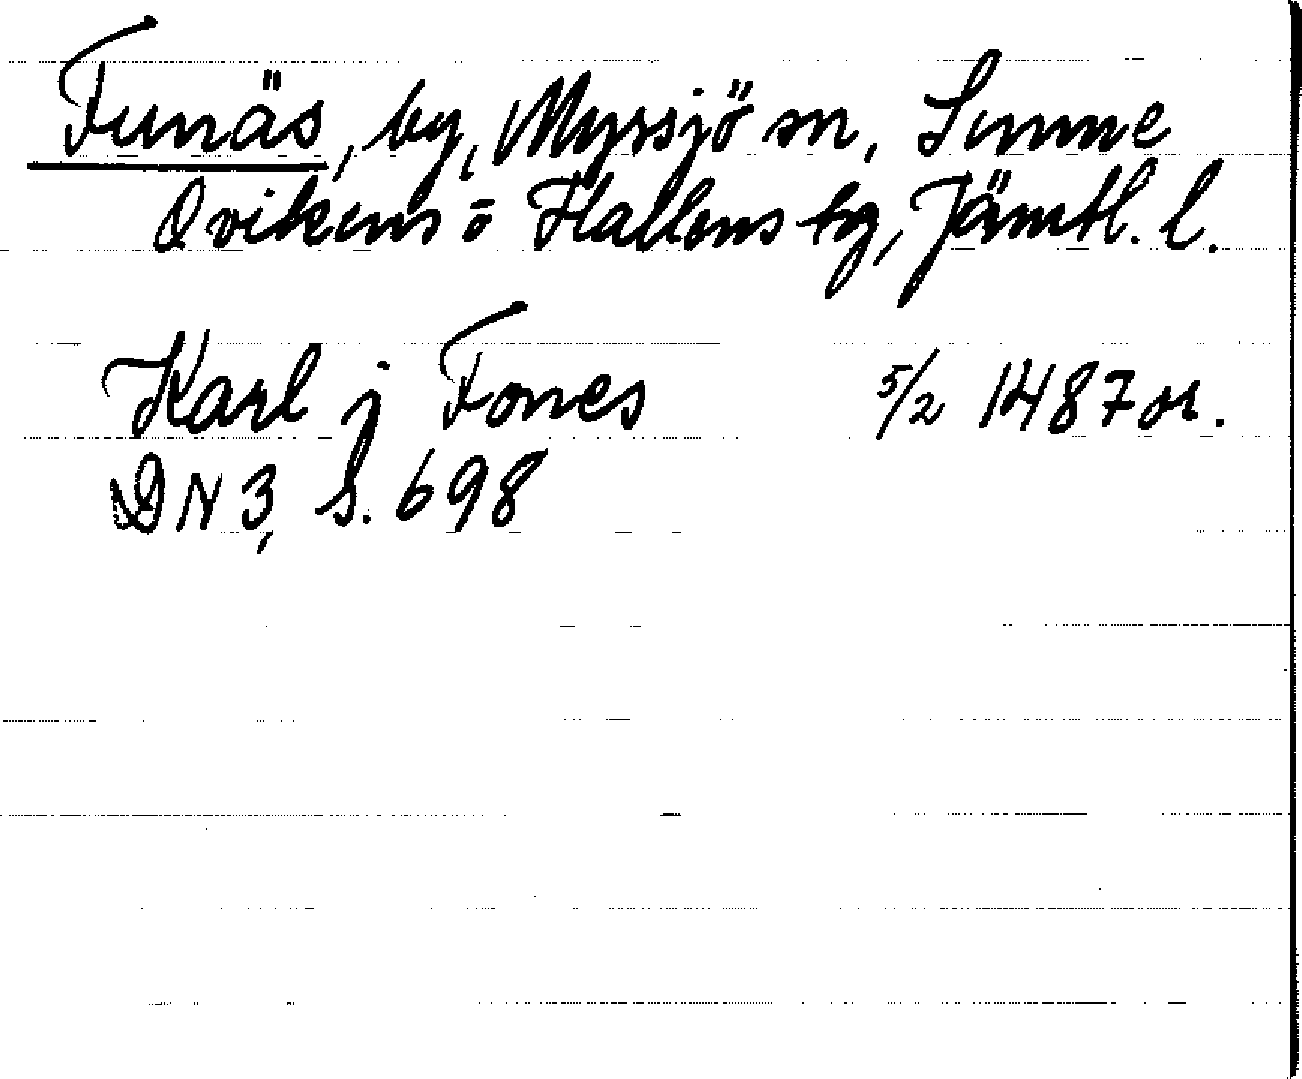 Funäs, by, Myssjö sn, Sunne
Ovikens o Hallens tg, Jämtl. l.
Karl j Fones 5/2 1487 or.
DN 3, s. 698